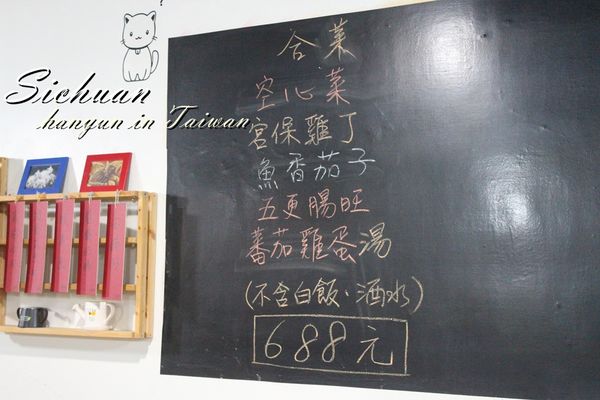 Sichuan
hanyun in Taiwan
合菜
空心菜
宮保雞丁
魚香茄子
五更腸旺
蕃茄雞蛋湯
(不含白飯、酒水)
688元